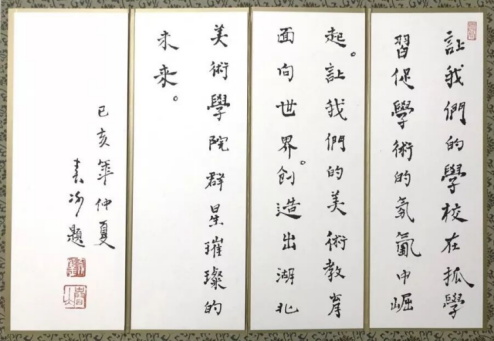 让我們的學校在抓學
習促學術的氛圍中崛
起。让我們的美術教育
面向世界。創造出湖北
美術學院群星璀璨的
未來。
己亥年仲夏
題